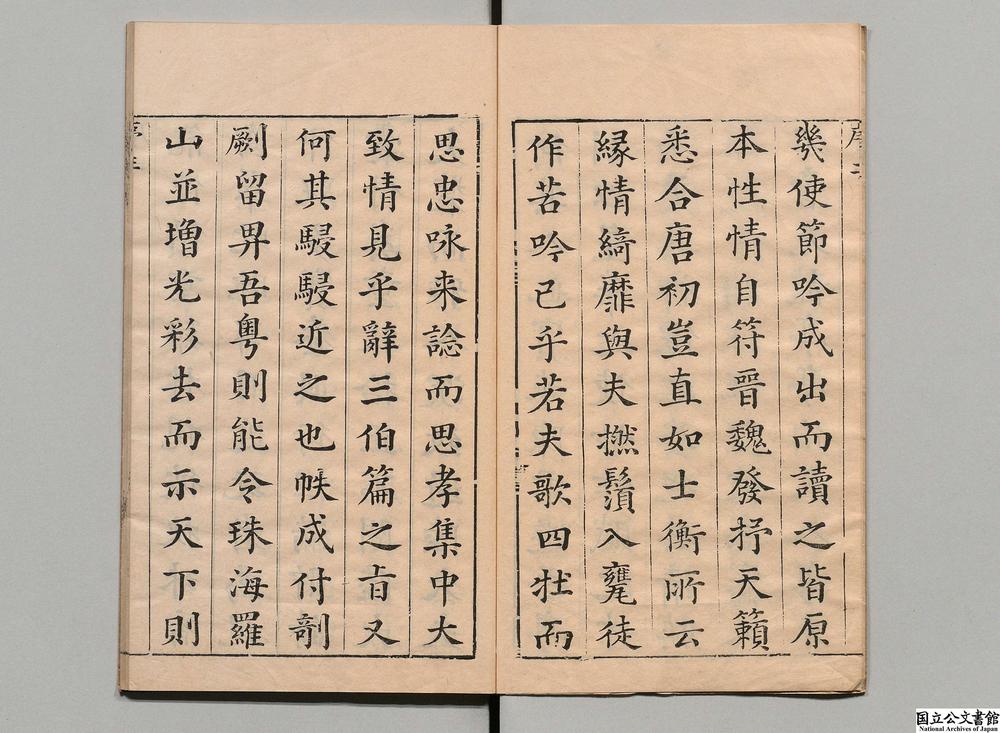 幾使節吟成出而讀之皆原
本性情自符晉魏發抒天籟
悉合唐初豈直如士衡所云
緣情綺靡與夫撚鬚入甕徒
作苦吟已乎若夫歌四牡而
思忠咏来諗而思孝集中大
致情見乎辭三伯篇之旨又
何其駸駸近之也帙成付剞
劂留畀吾粤則能令珠海羅
山並增光彩去而示天下則
国立公文書館
National Archives of Japan